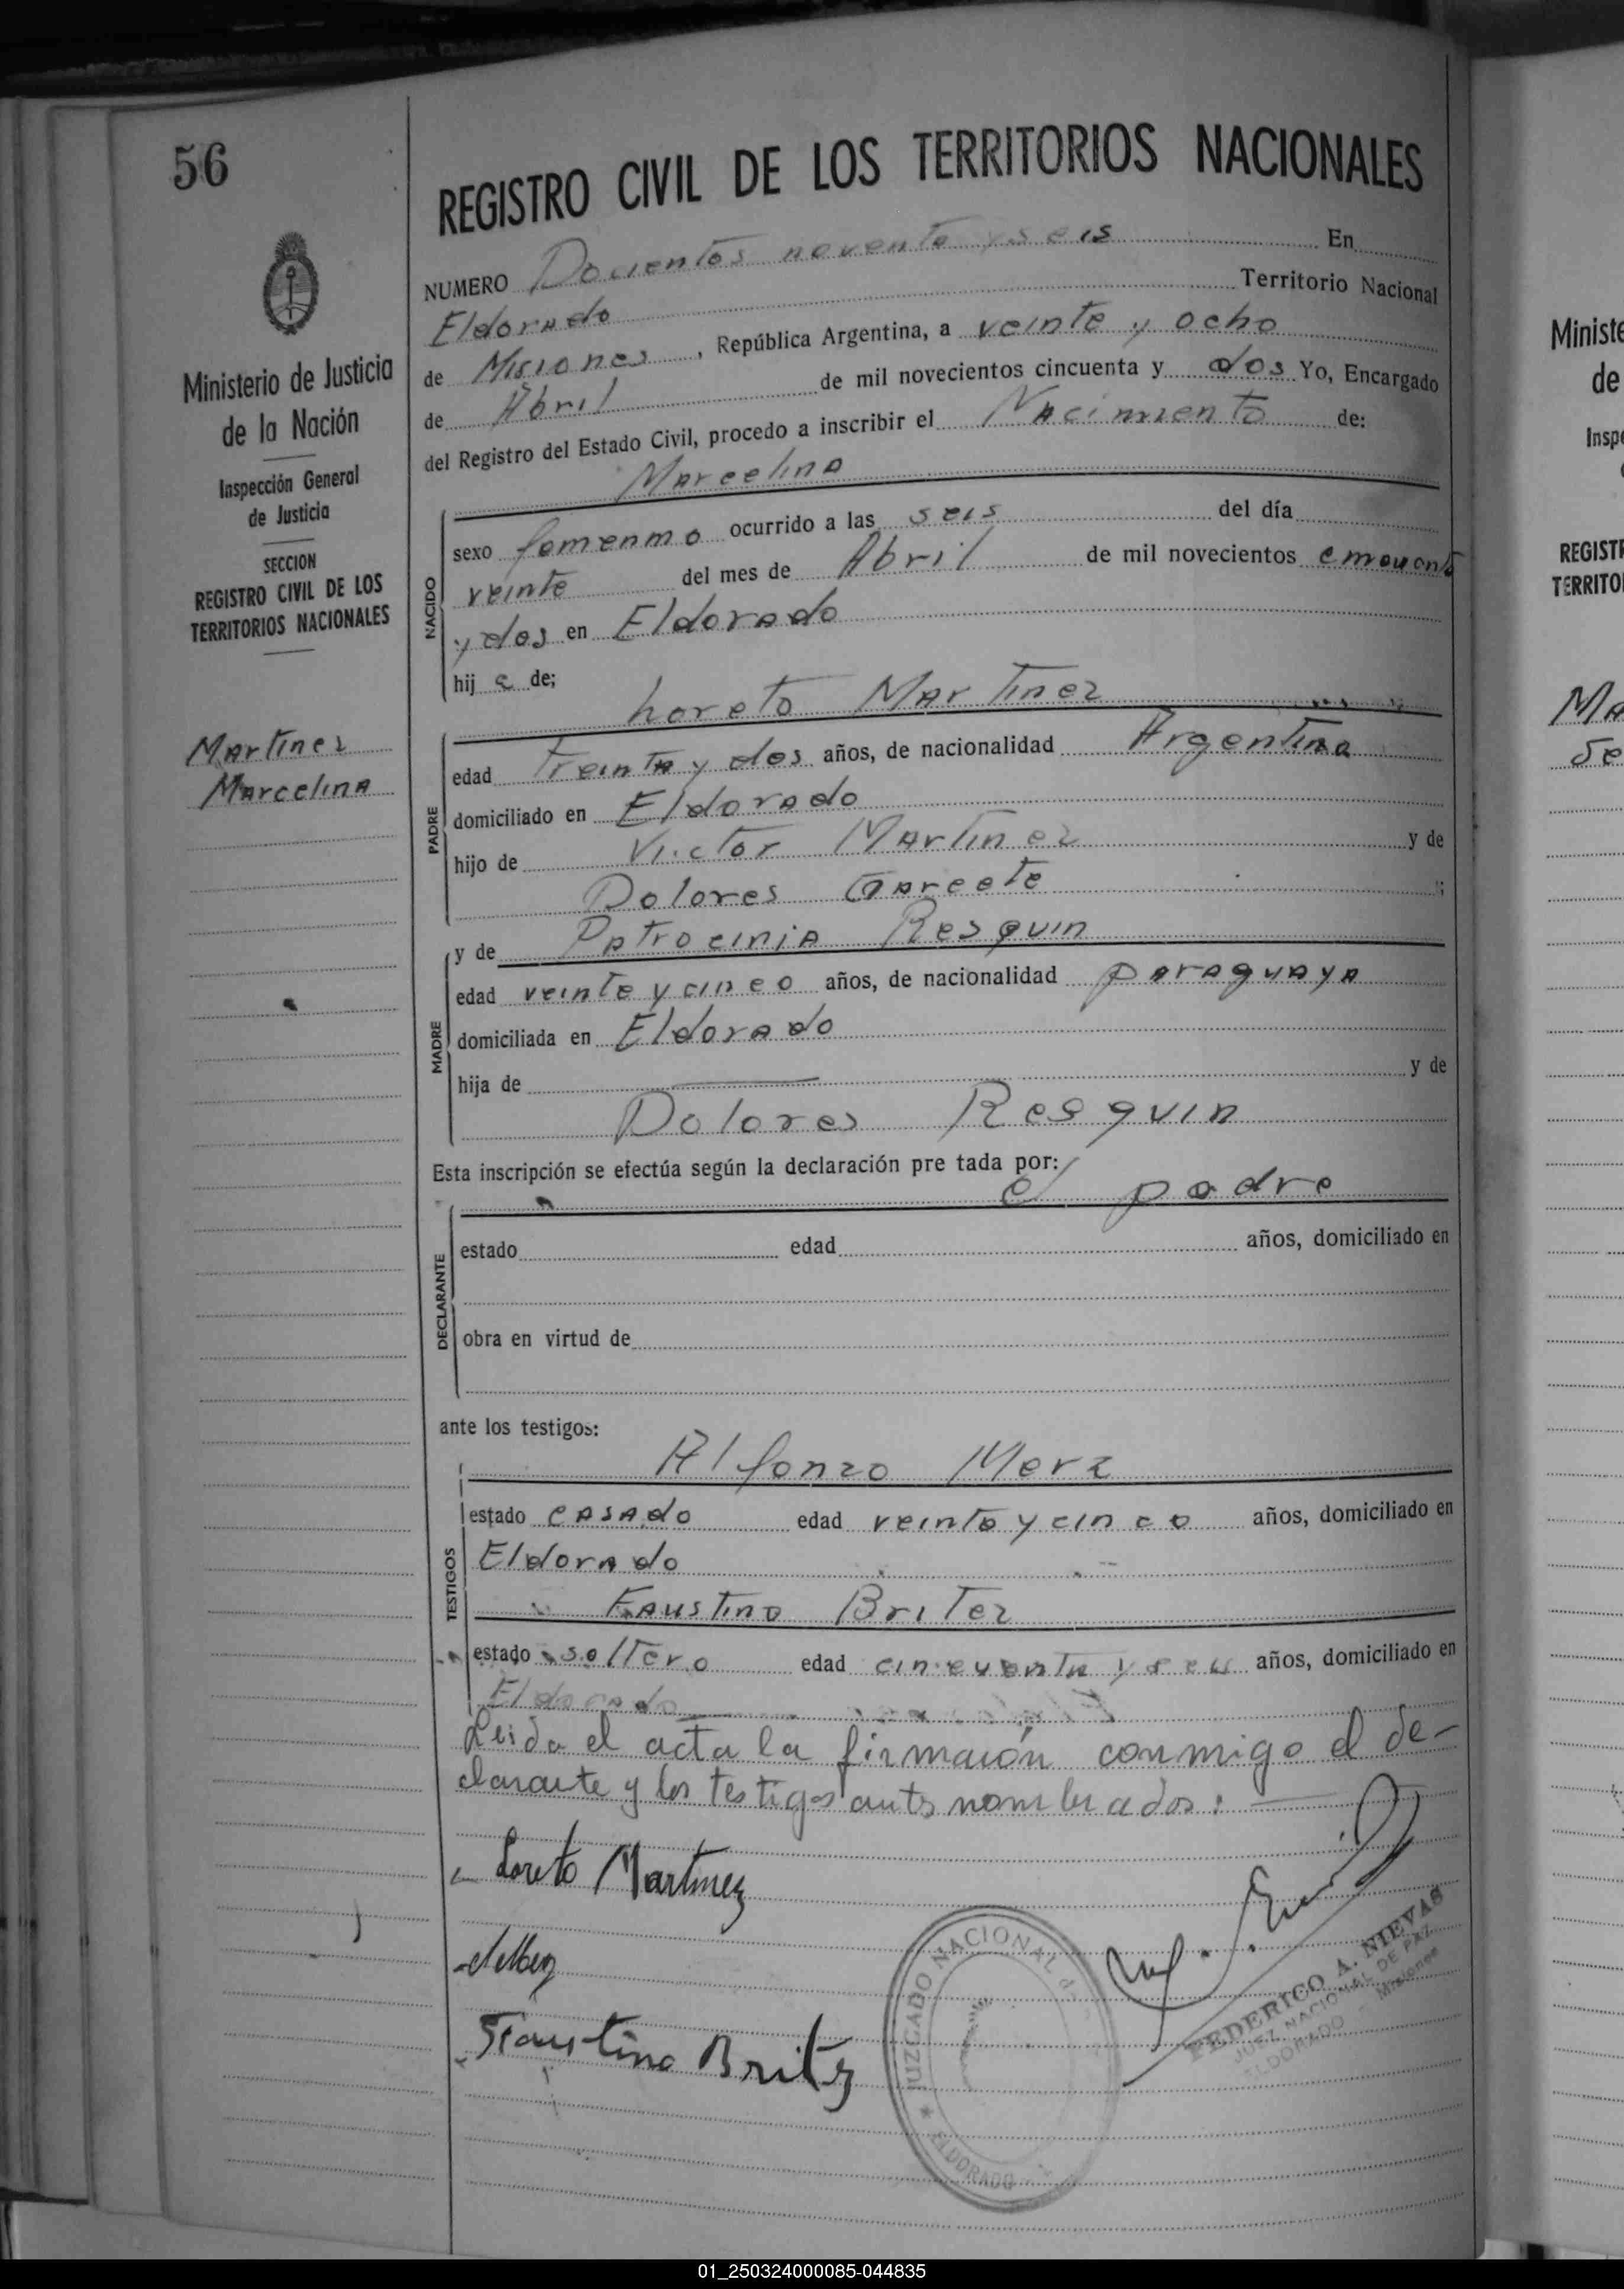 56
REGISTRO CIVIL DE LOS TERRITORIOS NACIONALES
NUMERO Docientos noventa y seis En
Eldorado Territorio Nacional
de Misiones, República Argentina, a veinte y ocho
de Abril de mil novecientos cincuenta y dos Yo, Encargado
del Registro del Estado Civil, procedo a inscribir el Nacimiento de:
Marcelina
Ministerio de Justicia
de la Nación
Inspección General
de Justicia
SECCION
REGISTRO CIVIL DE LOS
TERRITORIOS NACIONALES
Martinez
Marcelina
NACIDO
sexo femenino ocurrido a las seis del día
veinte del mes de Abril de mil novecientos cincuenta
y dos en Eldorado
hij a de;
Loreto Martinez
PADRE
edad Treinta y dos años, de nacionalidad Argentina
domiciliado en Eldorado
hijo de Victor Martinez y de
Dolores Garcete ;
y de Patrocinia Resquin
MADRE
edad veinte y cinco años, de nacionalidad paraguaya
domiciliada en Eldorado
hija de —— y de
Dolores Resquin
Esta inscripción se efectúa según la declaración pre tada por:
el padre
DECLARANTE
estado edad años, domiciliado en
obra en virtud de
ante los testigos:
Alfonzo Merz
TESTIGOS
estado casado edad veinte y cinco años, domiciliado en
Eldorado
Faustino Britez
estado soltero edad cincuenta y seis años, domiciliado en
Eldorado
Leida el acta la firmaron conmigo el de-
clarante y los testigos antes nombrados: —
Loreto Martinez
Faustino Britez
JUZGADO NACIONAL de
* ELDORADO
FEDERICO A. NIEVAS
JUEZ NACIONAL DE PAZ
ELDORADO - Misiones
Ministe
de
Inspe
REGISTR
TERRITO
Ma
Se
01_250324000085-044835